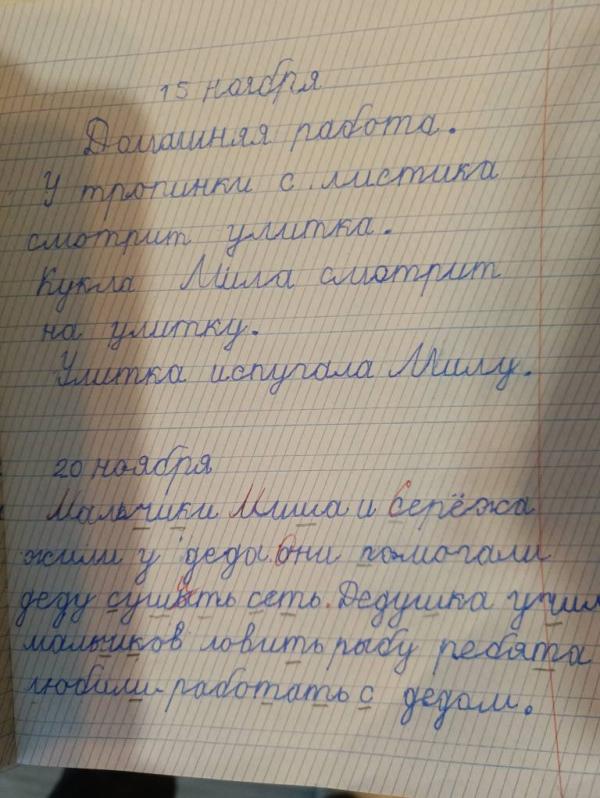 15 ноября
Домашняя работа.
У тропинки с листика
смотрит улитка.
Кукла Мила смотрит
на улитку.
Улитка испугала Милу.
20 ноября
Мальчики Миша и Серёжа
жили у деда. Они помогали
деду сушить сеть. Дедушка учил
мальчиков ловить рыбу ребята
любили работать с дедом.